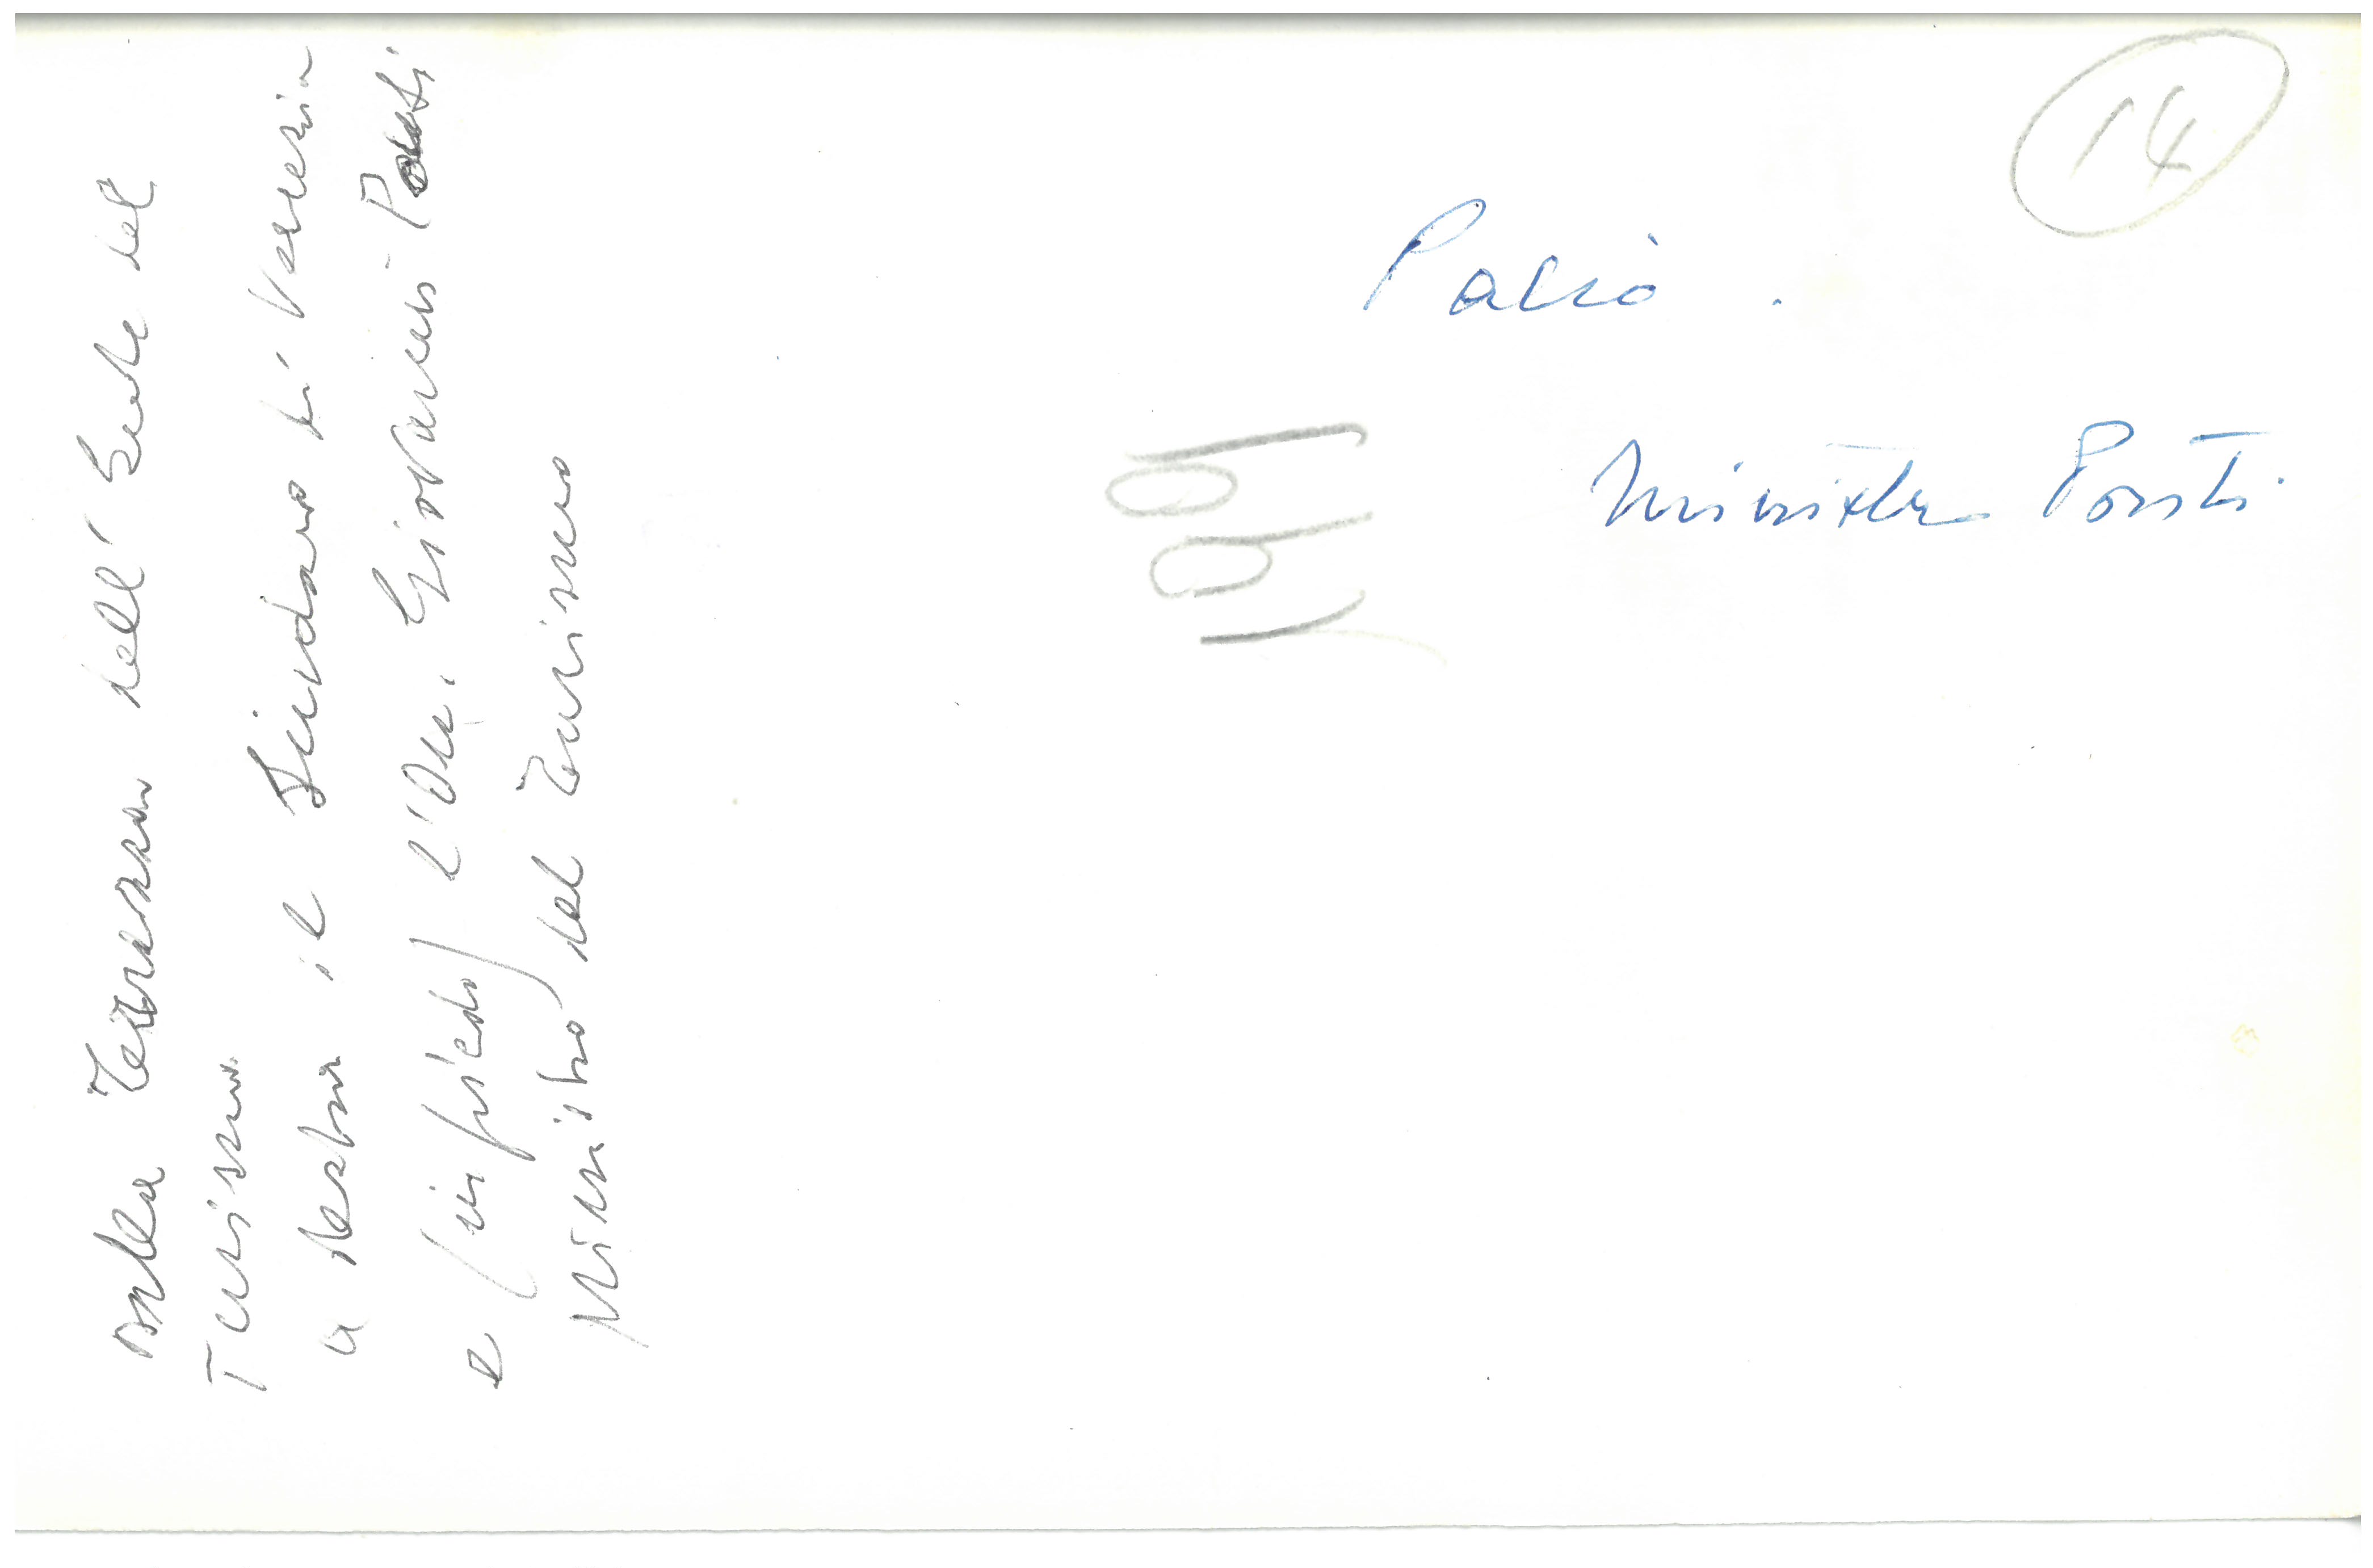 sulla Terrazza dell'Ente del
Turismo.
a destra il Sindaco di Venezia
e (in piedi) l'On. Giovanni Ponti
Ministro del Turismo
14
Ministro Ponti.